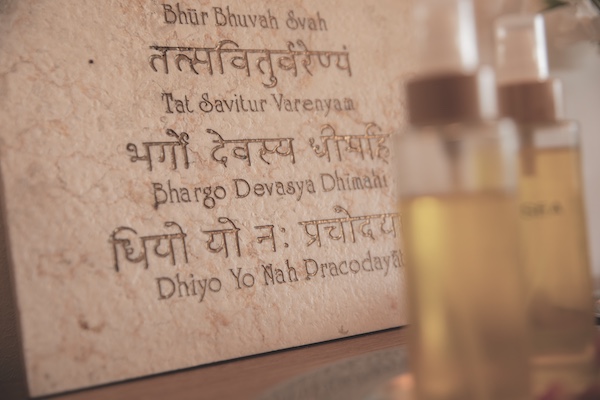 Bhūr Bhuvah Svah
तत्सवितुर्वरेण्यं
Tat Savitur Varenyam
भर्गो देवस्य धीमहि
Bhargo Devasya Dhimahi
धियो यो नः प्रचोदया
Dhiyo Yo Nah Pracodayā